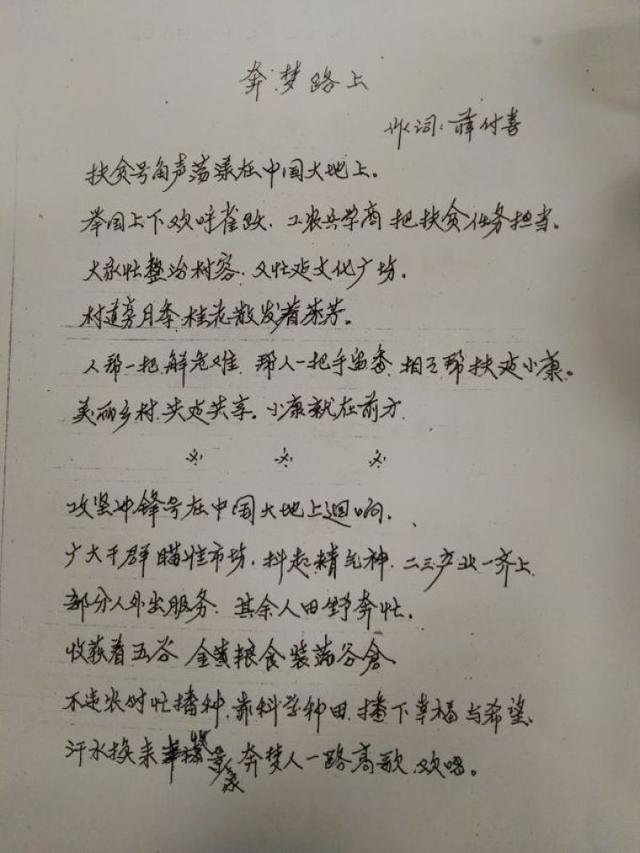 奔梦路上
作词：薛付喜
扶贫号角声荡漾在中国大地上。
举国上下欢呼雀跃，工农兵学商把扶贫任务担当。
大家忙整治村容，又忙建文化广坊。
村道旁月季桂花散发着芬芳。
人帮一把解危难，帮人一把手留香，相互帮扶建小康。
美丽乡村共建共享。小康就在前方
攻坚冲锋号在中国大地上迴响。
广大干群瞄准市坊，抖起精气神，二三产业一齐上
部分人外出服务，其余人田野奔忙。
收获着五谷 金黄粮食装满谷仓
不违农时忙播种，靠科学种田，播下幸福与希望，
汗水换来 景象 奔梦人一路高歌 欢唱。